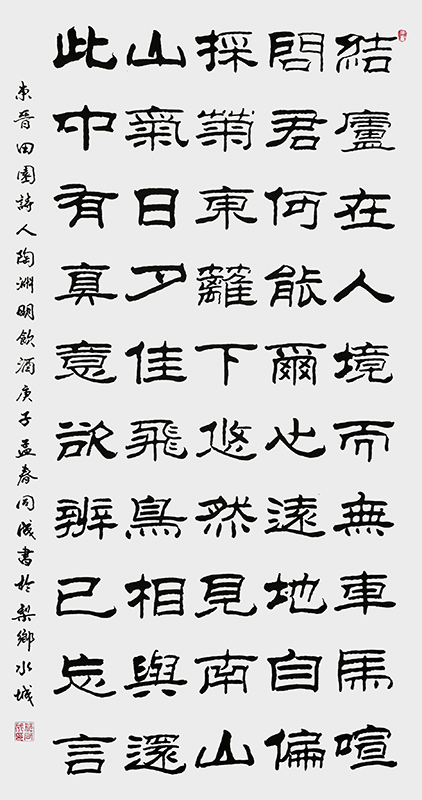 結廬在人境而無車馬喧
問君何能爾心遠地自偏
採菊東籬下悠然見南山
山氣日夕佳飛鳥相與還
此中有真意欲辨已忘言
東晉田園詩人陶淵明飲酒庚子孟春同書於梨鄉水城